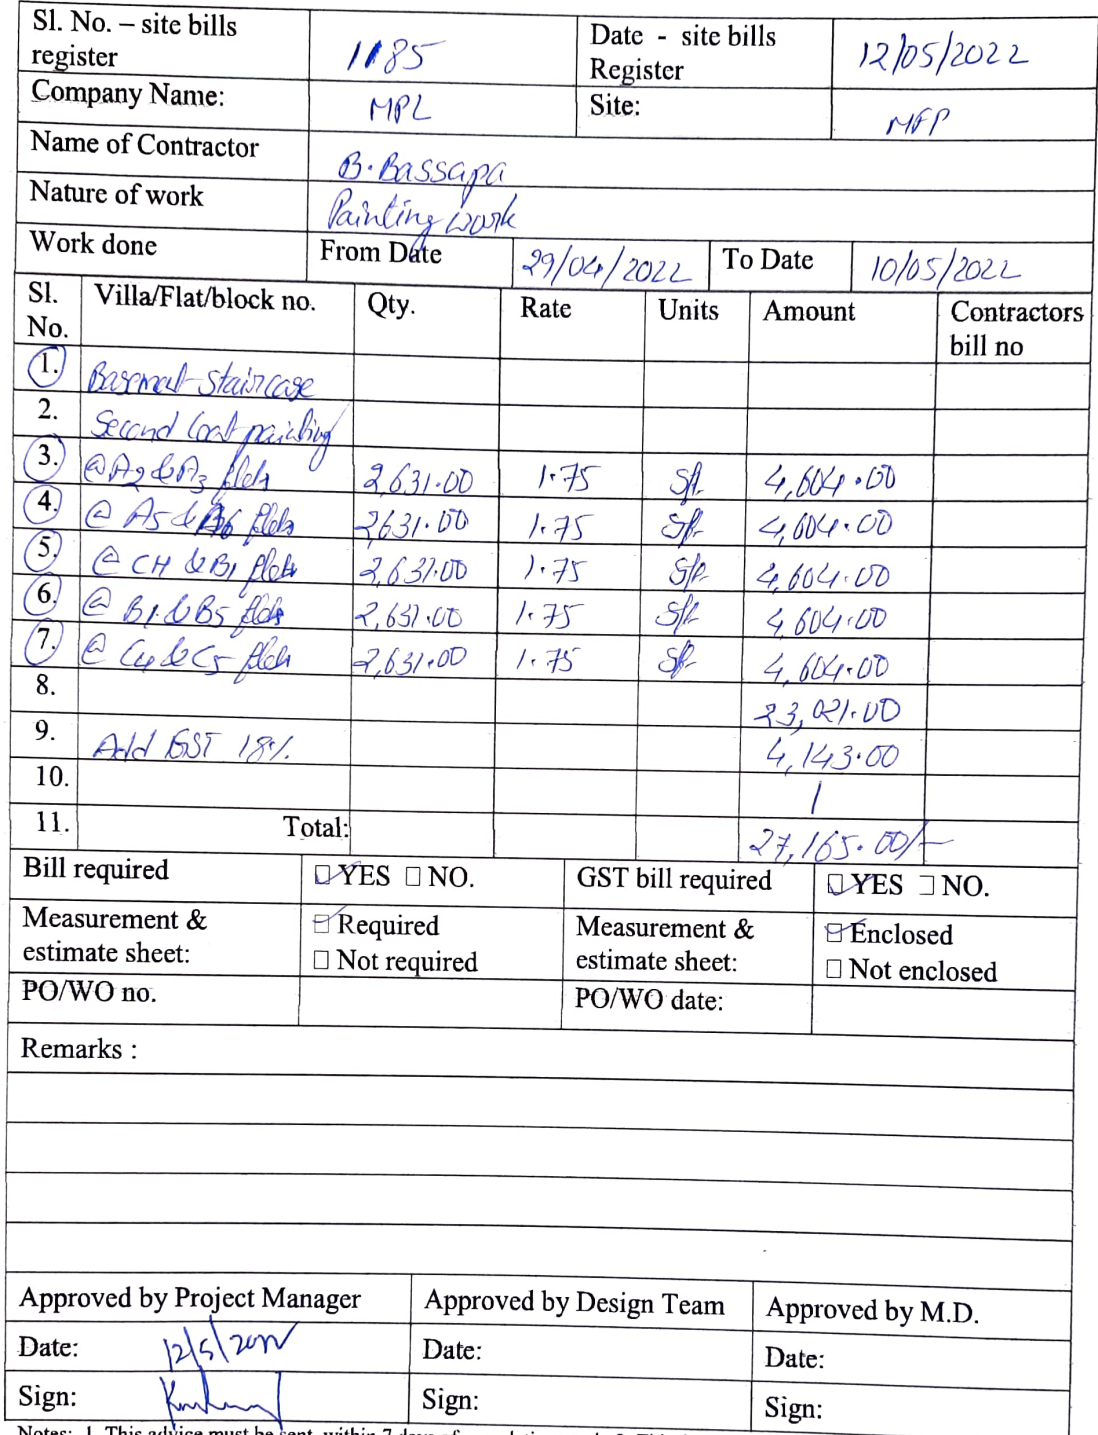 Sl. No. – site bills register 1185 Date - site bills Register 12/05/2022
Company Name: MPL Site: MFP
Name of Contractor B. Bassapa
Nature of work Painting work
Work done From Date 29/04/2022 To Date 10/05/2022
Sl. No. Villa/Flat/block no. Qty. Rate Units Amount Contractors bill no
1. Basement Staircase
2. Second Coat painting
3. @ A2 & A3 flats 2,631.00 1.75 Sft 4,604.00
4. @ A5 & A6 flats 2,631.00 1.75 Sft 4,604.00
5. @ & B1 flats 2,631.00 1.75 Sft 4,604.00
6. @ & B5 flats 2,631.00 1.75 Sft 4,604.00
7. @ C4 & C5 flats 2,631.00 1.75 Sft 4,604.00
8. 23,021.00
9. Add GST 18% 4,143.00
10.
11. Total: 27,165.00/-
Bill required ☑ YES ☐ NO. GST bill required ☑ YES ☐ NO.
Measurement & estimate sheet: ☑ Required ☐ Not required Measurement & estimate sheet: ☑ Enclosed ☐ Not enclosed
PO/WO no. PO/WO date:
Remarks :
Approved by Project Manager Approved by Design Team Approved by M.D.
Date: 12/5/2022 Date: Date:
Sign: Sign: Sign:
Notes: 1. This advice must be sent within 7 days of